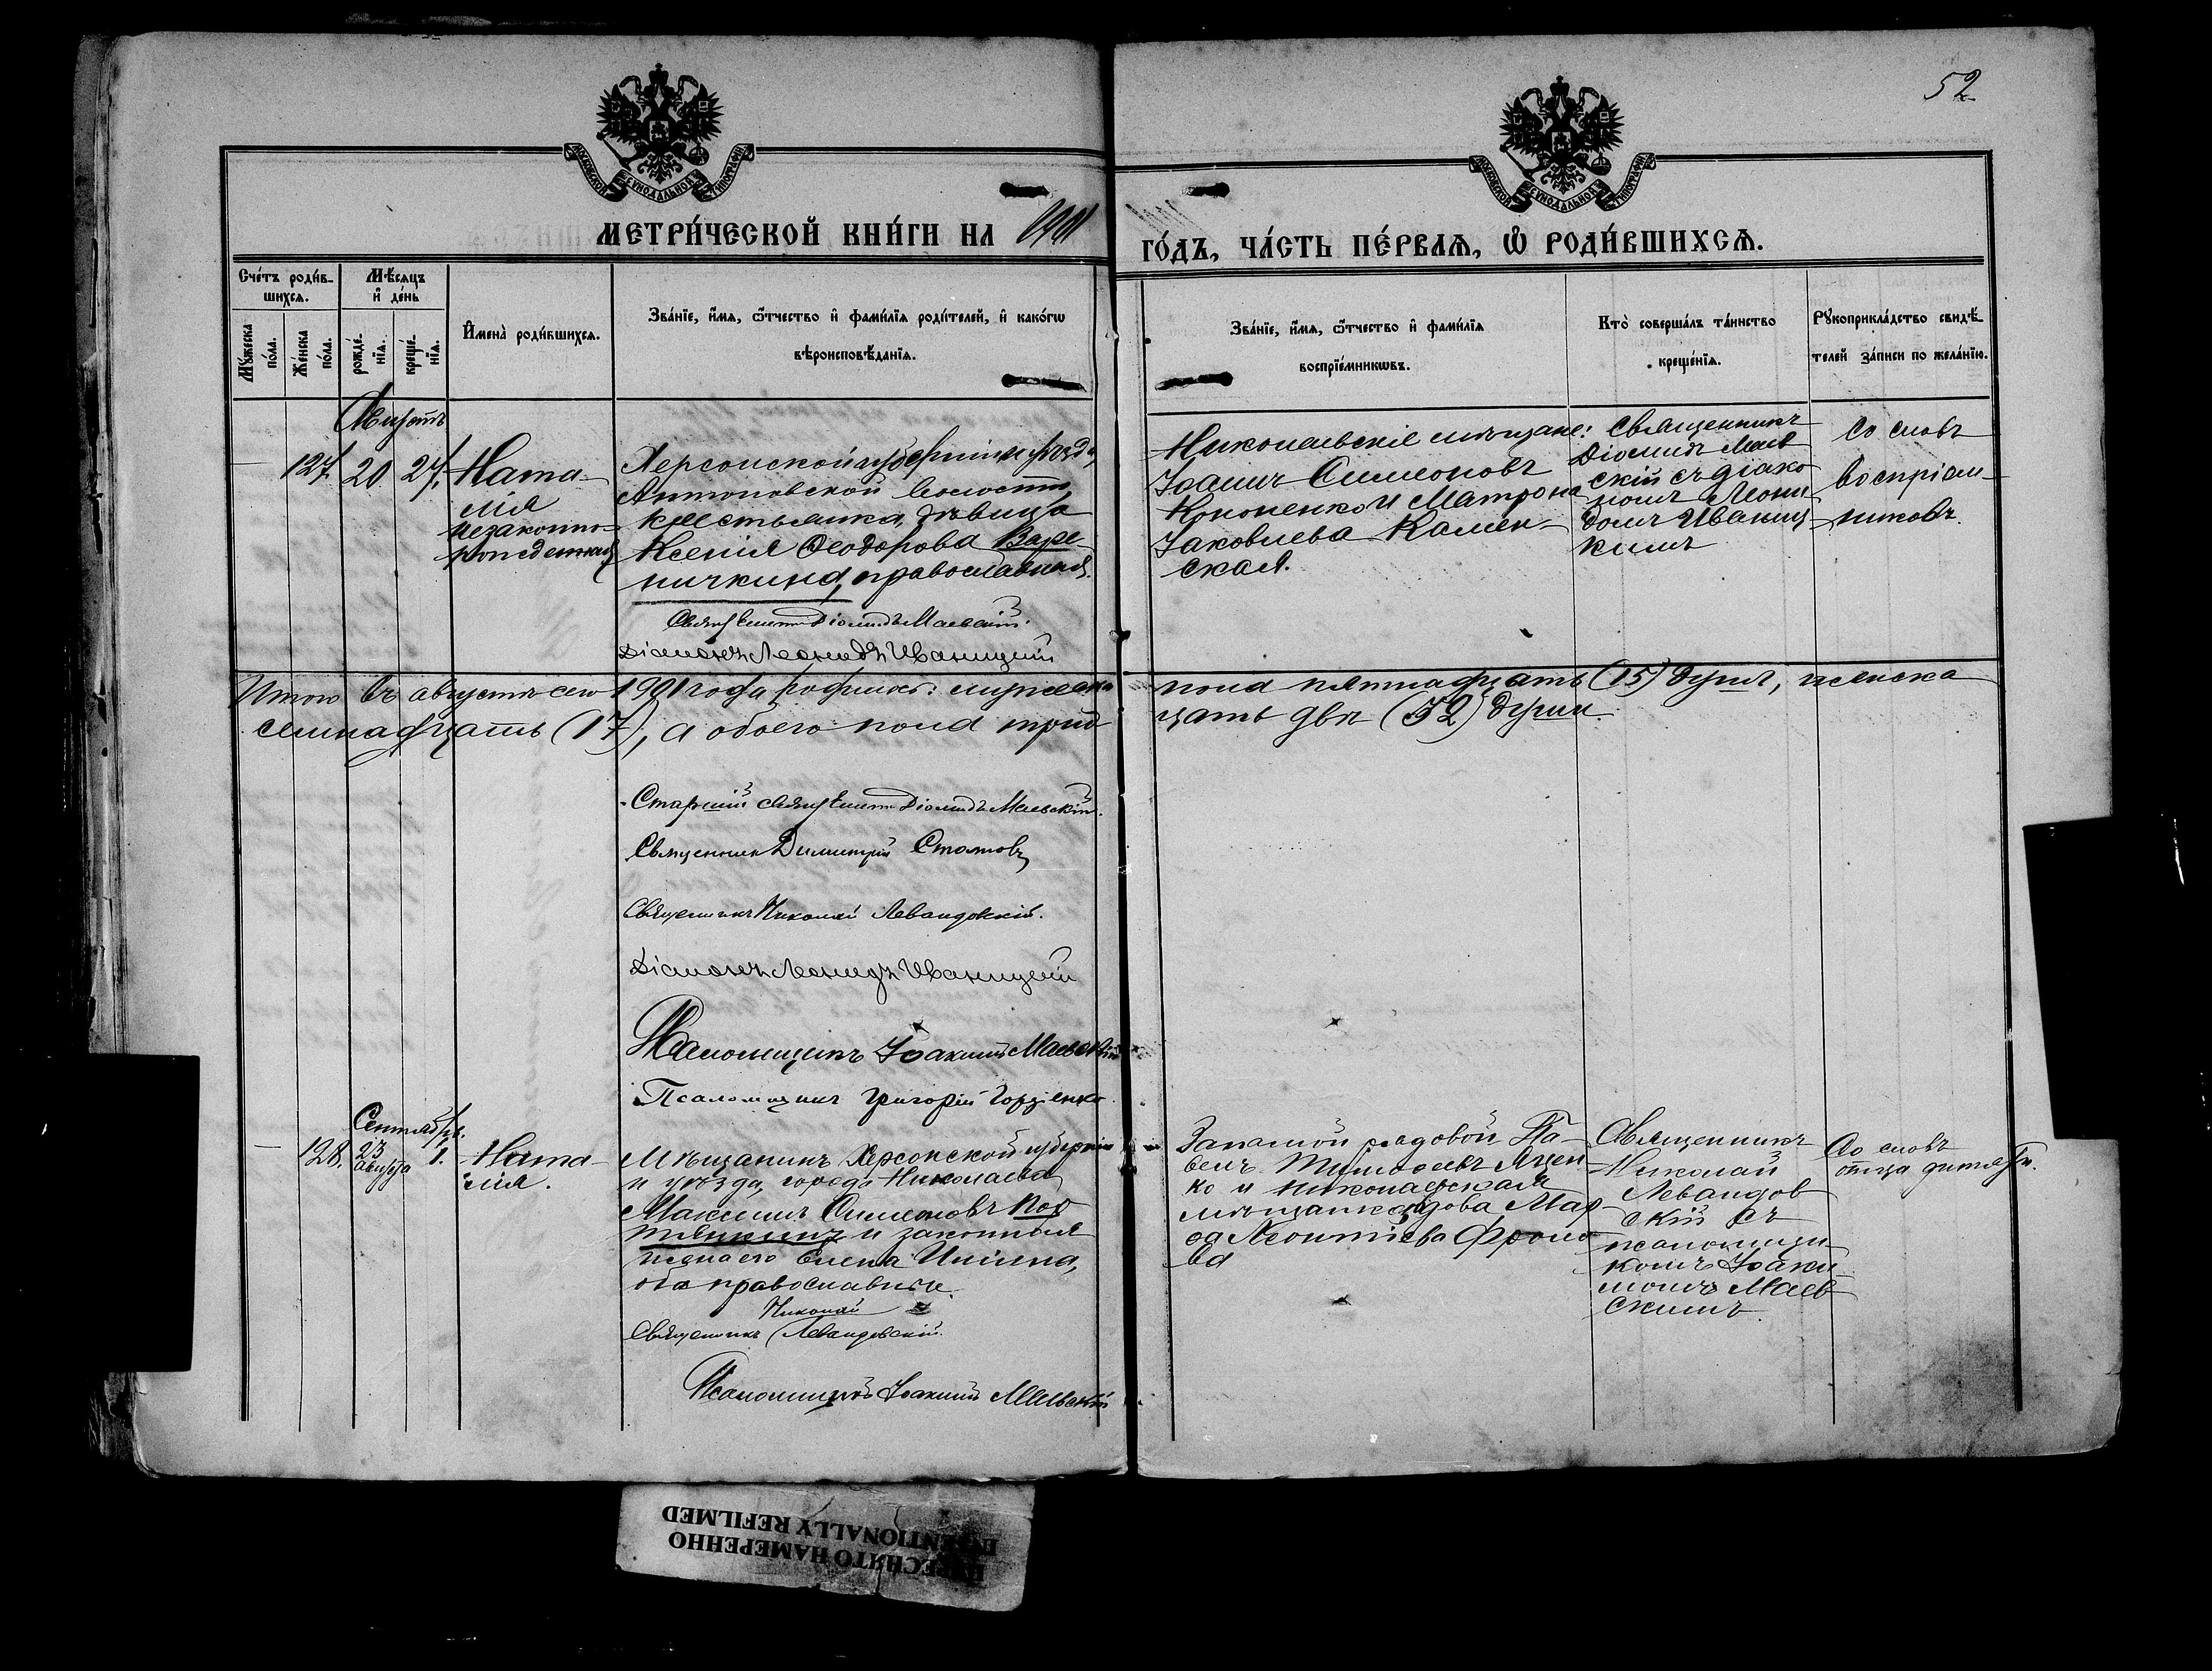 52
МЕТРИ́ЧЕСКОЙ КНИ́ГИ НА 1901
ГО́ДЪ, ЧА́СТЬ ПЕ́РВАЯ, Ѽ РОДИ́ВШИХСЯ.
Сче́тъ роди́в-
шихся.
Мѣ́сяцъ
и҆ де́нь
Мꙋ́жеска
по́ла.
Же́нска
по́ла.
рожде́-
нїя.
креще́-
нїя.
И҆мена̀ роди́вшихся.
Зва́нїе, и҆́мя, ѻ҆́тчество и҆ фами́лїя роди́телей, и҆ како́гѡ
вѣроисповѣ́данїя.
Зва́нїе, и҆́мя, ѻ҆́тчество и҆ фами́лїя
воспрїе́мникѡвъ.
Кто̀ соверша́лъ та́инство
креще́нїя.
Рꙋкоприкла́дство свидѣ́-
телей за́писи по жела́нїю.
Августъ
127. 20 27. Ната-
лія
незаконно-
рожденная
Херсонской губерніи и уѣзда,
Антоновской волости,
крестьянка, дѣвица
Ксенія Ѳеодорова Варе-
ничкина, православная.
Священникъ Діомидъ Маевскій.
Діаконъ Леонидъ Иваницкій
Николаевскіе мѣщане:
Іоаннъ Симеоновъ
Кононенко и Матрона
Іаковлева Камен-
ская.
Священникъ
Діомидъ Маев
скій съ діако
номъ Леони
домъ Иваниц
кимъ
Со словъ
воспріем-
никовъ.
Итого въ августѣ сего 1901 года родилось: мужеска пола пятнадцать (15) душъ, женска
семнадцать (17), а обоего пола трид цать двѣ (32) души.
Старшій священникъ Діомидъ Маевскій.
Священникъ Димитрій
Священникъ Николай Левандовскій.
Діаконъ Леонидъ Иваницкій
Псаломщикъ Іоакимъ Маевскій
Псаломщикъ Григорій Гордіенко.
Сентябрь.
128. 23 августа 1. Ната-
лія.
Мѣщанинъ Херсонской губерніи
и уѣзда, города Николаева
Максимъ Симеоновъ Кор
и законная
жена его Елена Иліина,
оба православные.
Николай
Священникъ Левандовскій.
Псаломщикъ Іоакимъ Маевскій
Запасной рядовой Па-
велъ Тимоѳеевъ Яцен-
ко и николаевская
мѣщанка вдова Мар-
ѳа Леонтіева Фроло
ва
Священникъ
Николай
Левандов
скій съ
псаломщи-
комъ Іоаки
момъ Маев
скимъ.
Со словъ
отца дитяти.
ПЕРЕСНЯТО НАМЕРЕННО
INTENTIONALLY REFILMED